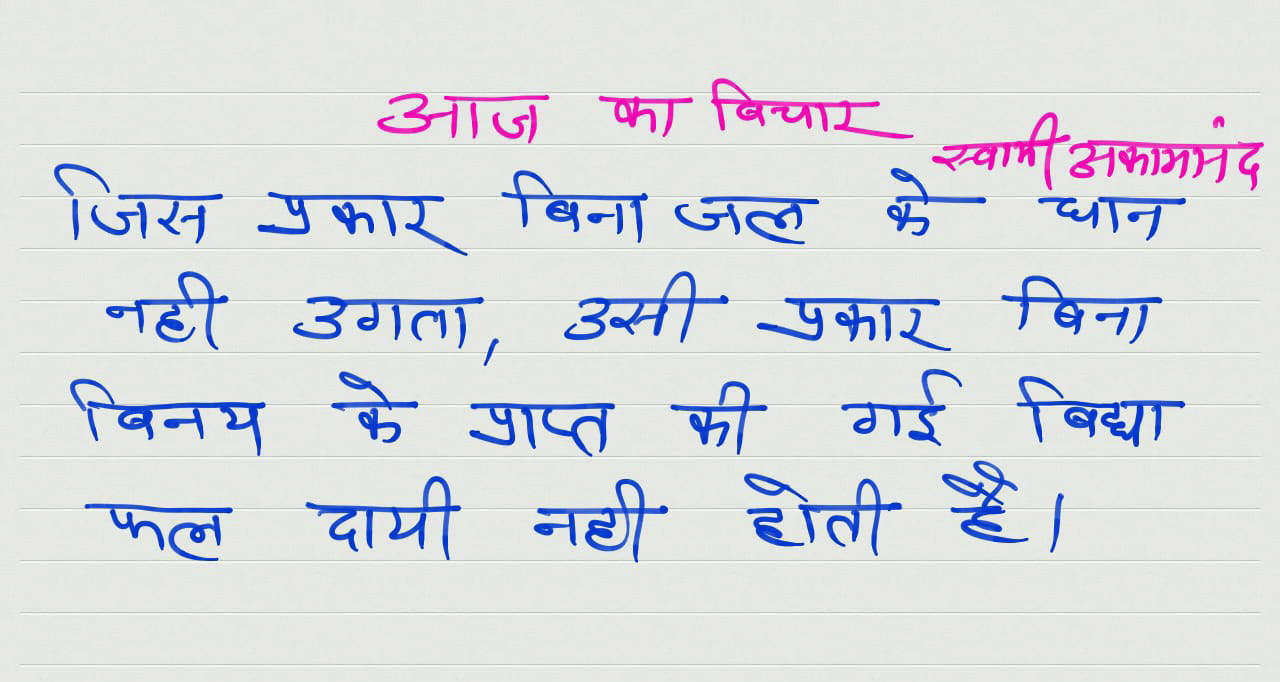 आज का बिचार
स्वामी अकामानंद
जिस प्रकार बिना जल के धान
नही उगता, उसी प्रकार बिना
बिनय के प्राप्त की गई बिद्या
फल दायी नही होती है।